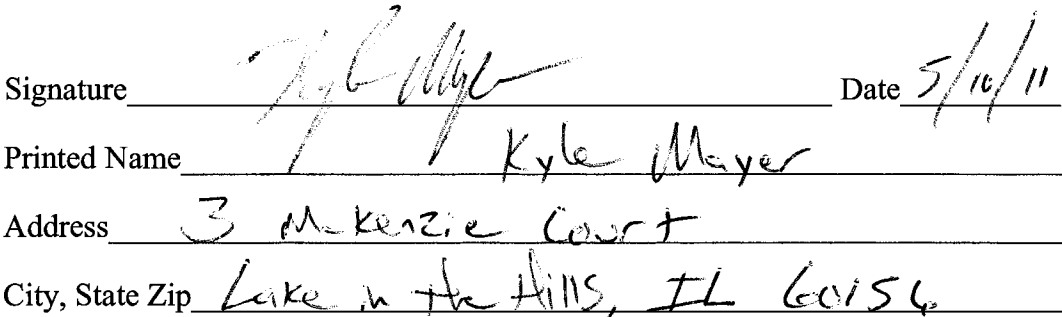 Signature Kyle Mayer Date 5/10/11
Printed Name Kyle Mayer
Address 3 McKenzie Court
City, State Zip Lake in the Hills, IL 60156